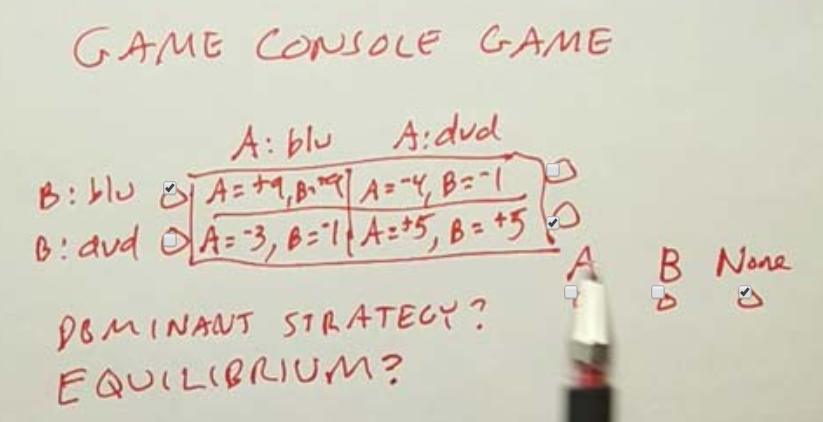 GAME CONSOLE GAME
A: blu A: dvd
B: blu A=+9, B=+9 A=-4, B=-1
B: dvd A=-3, B=-1 A=+5, B=+5
A B None
DOMINANT STRATEGY?
EQUILIBRIUM?